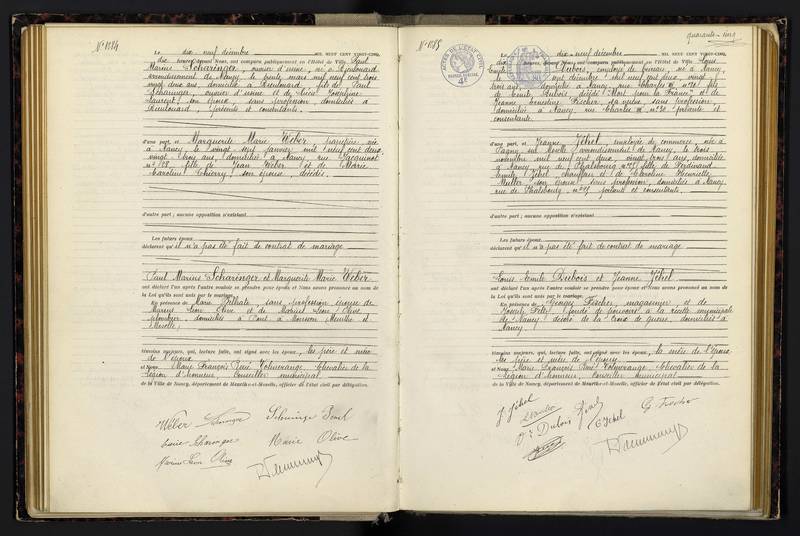 N° 1084
Le dix-neuf décembre MIL NEUF CENT VINGT-CINQ,
dix heures, devant Nous, ont comparu publiquement en l'Hôtel de Ville Paul
Marius Scharinger, ouvrier d'usine, né à Dieulouard
arrondissement de Nancy, le trente mars mil neuf cent trois
vingt deux ans, domicilié à Dieulouard, fils de Paul
Scharinger, ouvrier d'usine et de Lucie Joséphine
son épouse, sans profession, domiciliés à
Dieulouard, présents et consentants.
d'une part, et Marguerite Marie Weber, née
à Nancy, le vingt sept janvier mil neuf cent deux
vingt trois ans, domiciliée à Nancy, rue
n° 138, fille de Léon Weber et de Marie
Caroline Thierry son épouse, décédés.
d'autre part ; aucune opposition n'existant
Les futurs époux
déclarent qu'il n'a pas été fait de contrat de mariage
Paul Marius Scharinger et Marguerite Marie Weber
ont déclaré l'un après l'autre vouloir se prendre pour époux et Nous avons prononcé au nom de
la Loi qu'ils sont unis par le mariage.
En présence de Marie sans profession épouse de
Marius Léon Olive et de Marius Léon Olive,
plombier, domiciliés à Pont à Mousson Meurthe et
Moselle
témoins majeurs, qui, lecture faite, ont signé avec les époux, les père et mère
de l'époux
et Nous Marie François René Volmerange, Chevalier de la
Légion d'honneur, Conseiller municipal
de la Ville de Nancy, département de Meurthe-et-Moselle, officier de l'état civil par délégation.
Weber
Marie Olive
Marius Léon Olive
quarante-cinq
N° 1085
Le dix-neuf décembre MIL NEUF CENT VINGT-CINQ,
dix heures, devant Nous, ont comparu publiquement en l'Hôtel de Ville Louis
Emile Dubois, employé de bureau, né à Nancy,
le sept décembre mil neuf cent deux, vingt
trois ans, domicilié à Nancy, rue Charles III n° 30, fils
de Emile Dubois, décédé "Mort pour la France" et de
Jeanne Ernestine Fischer, sa veuve, sans profession
domiciliée à Nancy, rue Charles III n° 30 présente et
consentante.
d'une part, et Jeanne Jéhel, employée de commerce, née à
Pagny sur Moselle arrondissement de Nancy, le trois
novembre mil neuf cent deux, vingt trois ans, domiciliée
à Nancy rue de Phalsbourg n° 25, fille de Ferdinand
Emile Jéhel chauffeur et de Caroline Henriette
Muller son épouse sans profession, domiciliés à Nancy
rue de Phalsbourg n° 25 présents et consentants.
d'autre part ; aucune opposition n'existant
Les futurs époux
déclarent qu'il n'a pas été fait de contrat de mariage
Louis Emile Dubois et Jeanne Jéhel
ont déclaré l'un après l'autre vouloir se prendre pour époux et Nous avons prononcé au nom de
la Loi qu'ils sont unis par le mariage.
En présence de Georges Fischer, magasinier, et de
Joseph fondé de pouvoirs à la recette municipale
de Nancy décoré de la Croix de guerre, domiciliés à
Nancy.
témoins majeurs, qui, lecture faite, ont signé avec les époux, la mère de l'époux
les père et mère de l'épouse
et Nous Marie François René Volmerange, Chevalier de la
Légion d'honneur, Conseiller municipal
de la Ville de Nancy, département de Meurthe-et-Moselle, officier de l'état civil par délégation.
J Jéhel
G Fischer
Dubois
E Jéhel